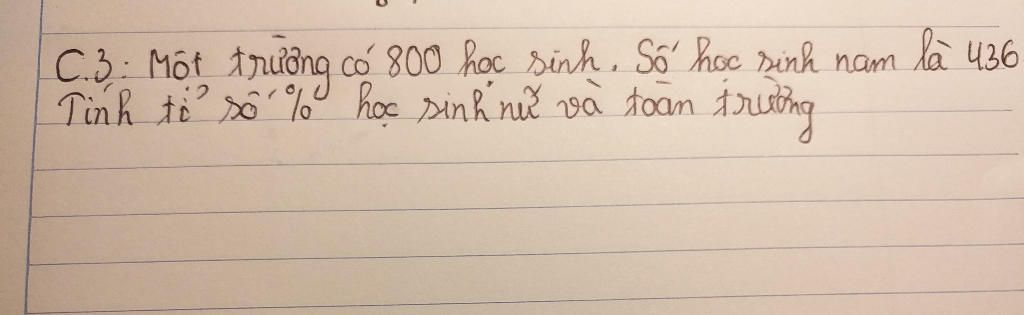 C.3: Một trường có 800 học sinh. Số học sinh nam là 436
Tính tỉ số % học sinh nữ và toàn trường